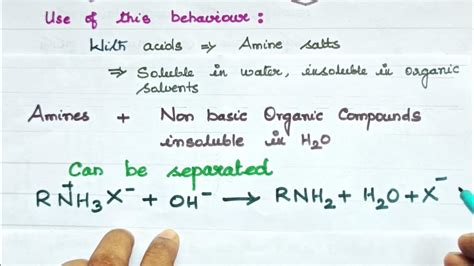 Use of this behaviour :
With acids ⇒ Amine salts
⇒ Soluble in water, insoluble in organic
solvents
Amines + Non basic Organic Compounds
insoluble in H₂O
Can be separated
RN⁺H₃X⁻ + OH⁻ → RNH₂ + H₂O + X⁻